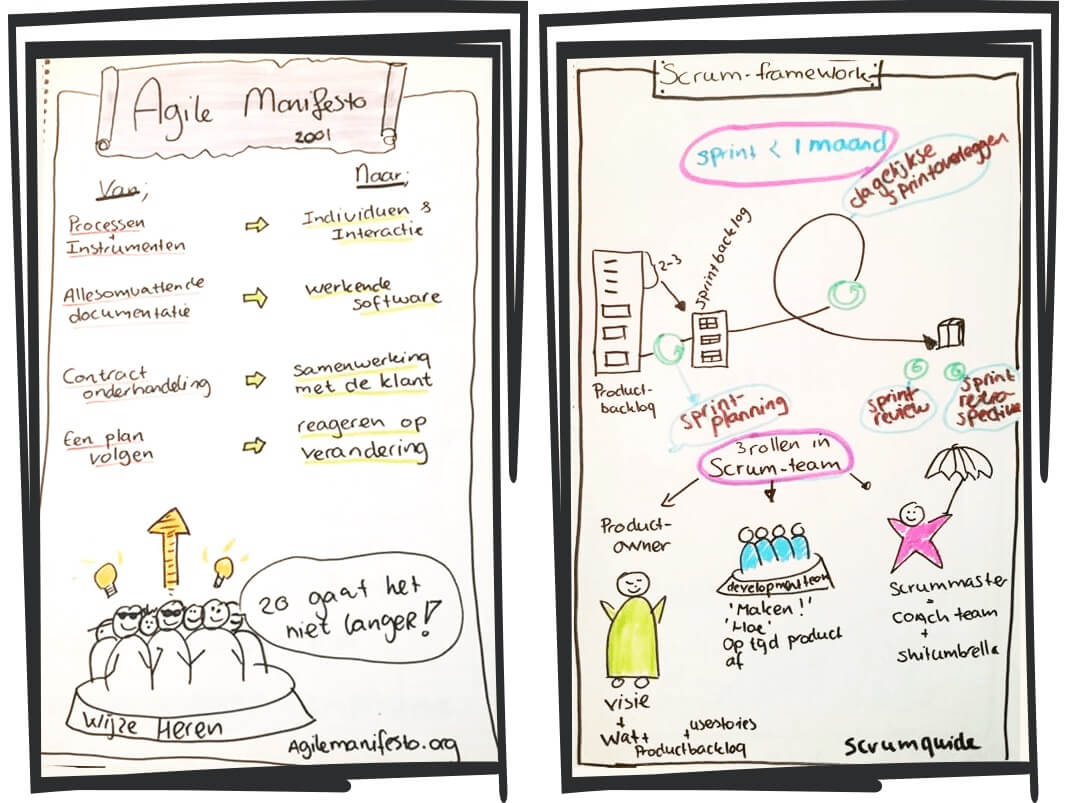 Agile Manifesto
2001
Van;
Naar;
Processen
+
Instrumenten
Individuen &
Interactie
Allesomvattende
documentatie
werkende
software
Contract
onderhandeling
samenwerking
met de klant
Een plan
volgen
reageren op
verandering
zo gaat het
niet langer!
Wijze Heren
Agilemanifesto.org
Scrum-framework
sprint < 1 maand
dagelijkse
sprintoverleggen
2-3
sprintbacklog
Product-
backlog
sprint-
planning
sprint
review
sprint
retro-
spective
3 rollen in
Scrum-team
Product-
owner
visie
+
Wat +
usestories
+
Productbacklog
developmentteam
'Maken!'
'Hoe'
Op tijd product
af
Scrummaster
=
coach team
+
shitumbrella
Scrumguide